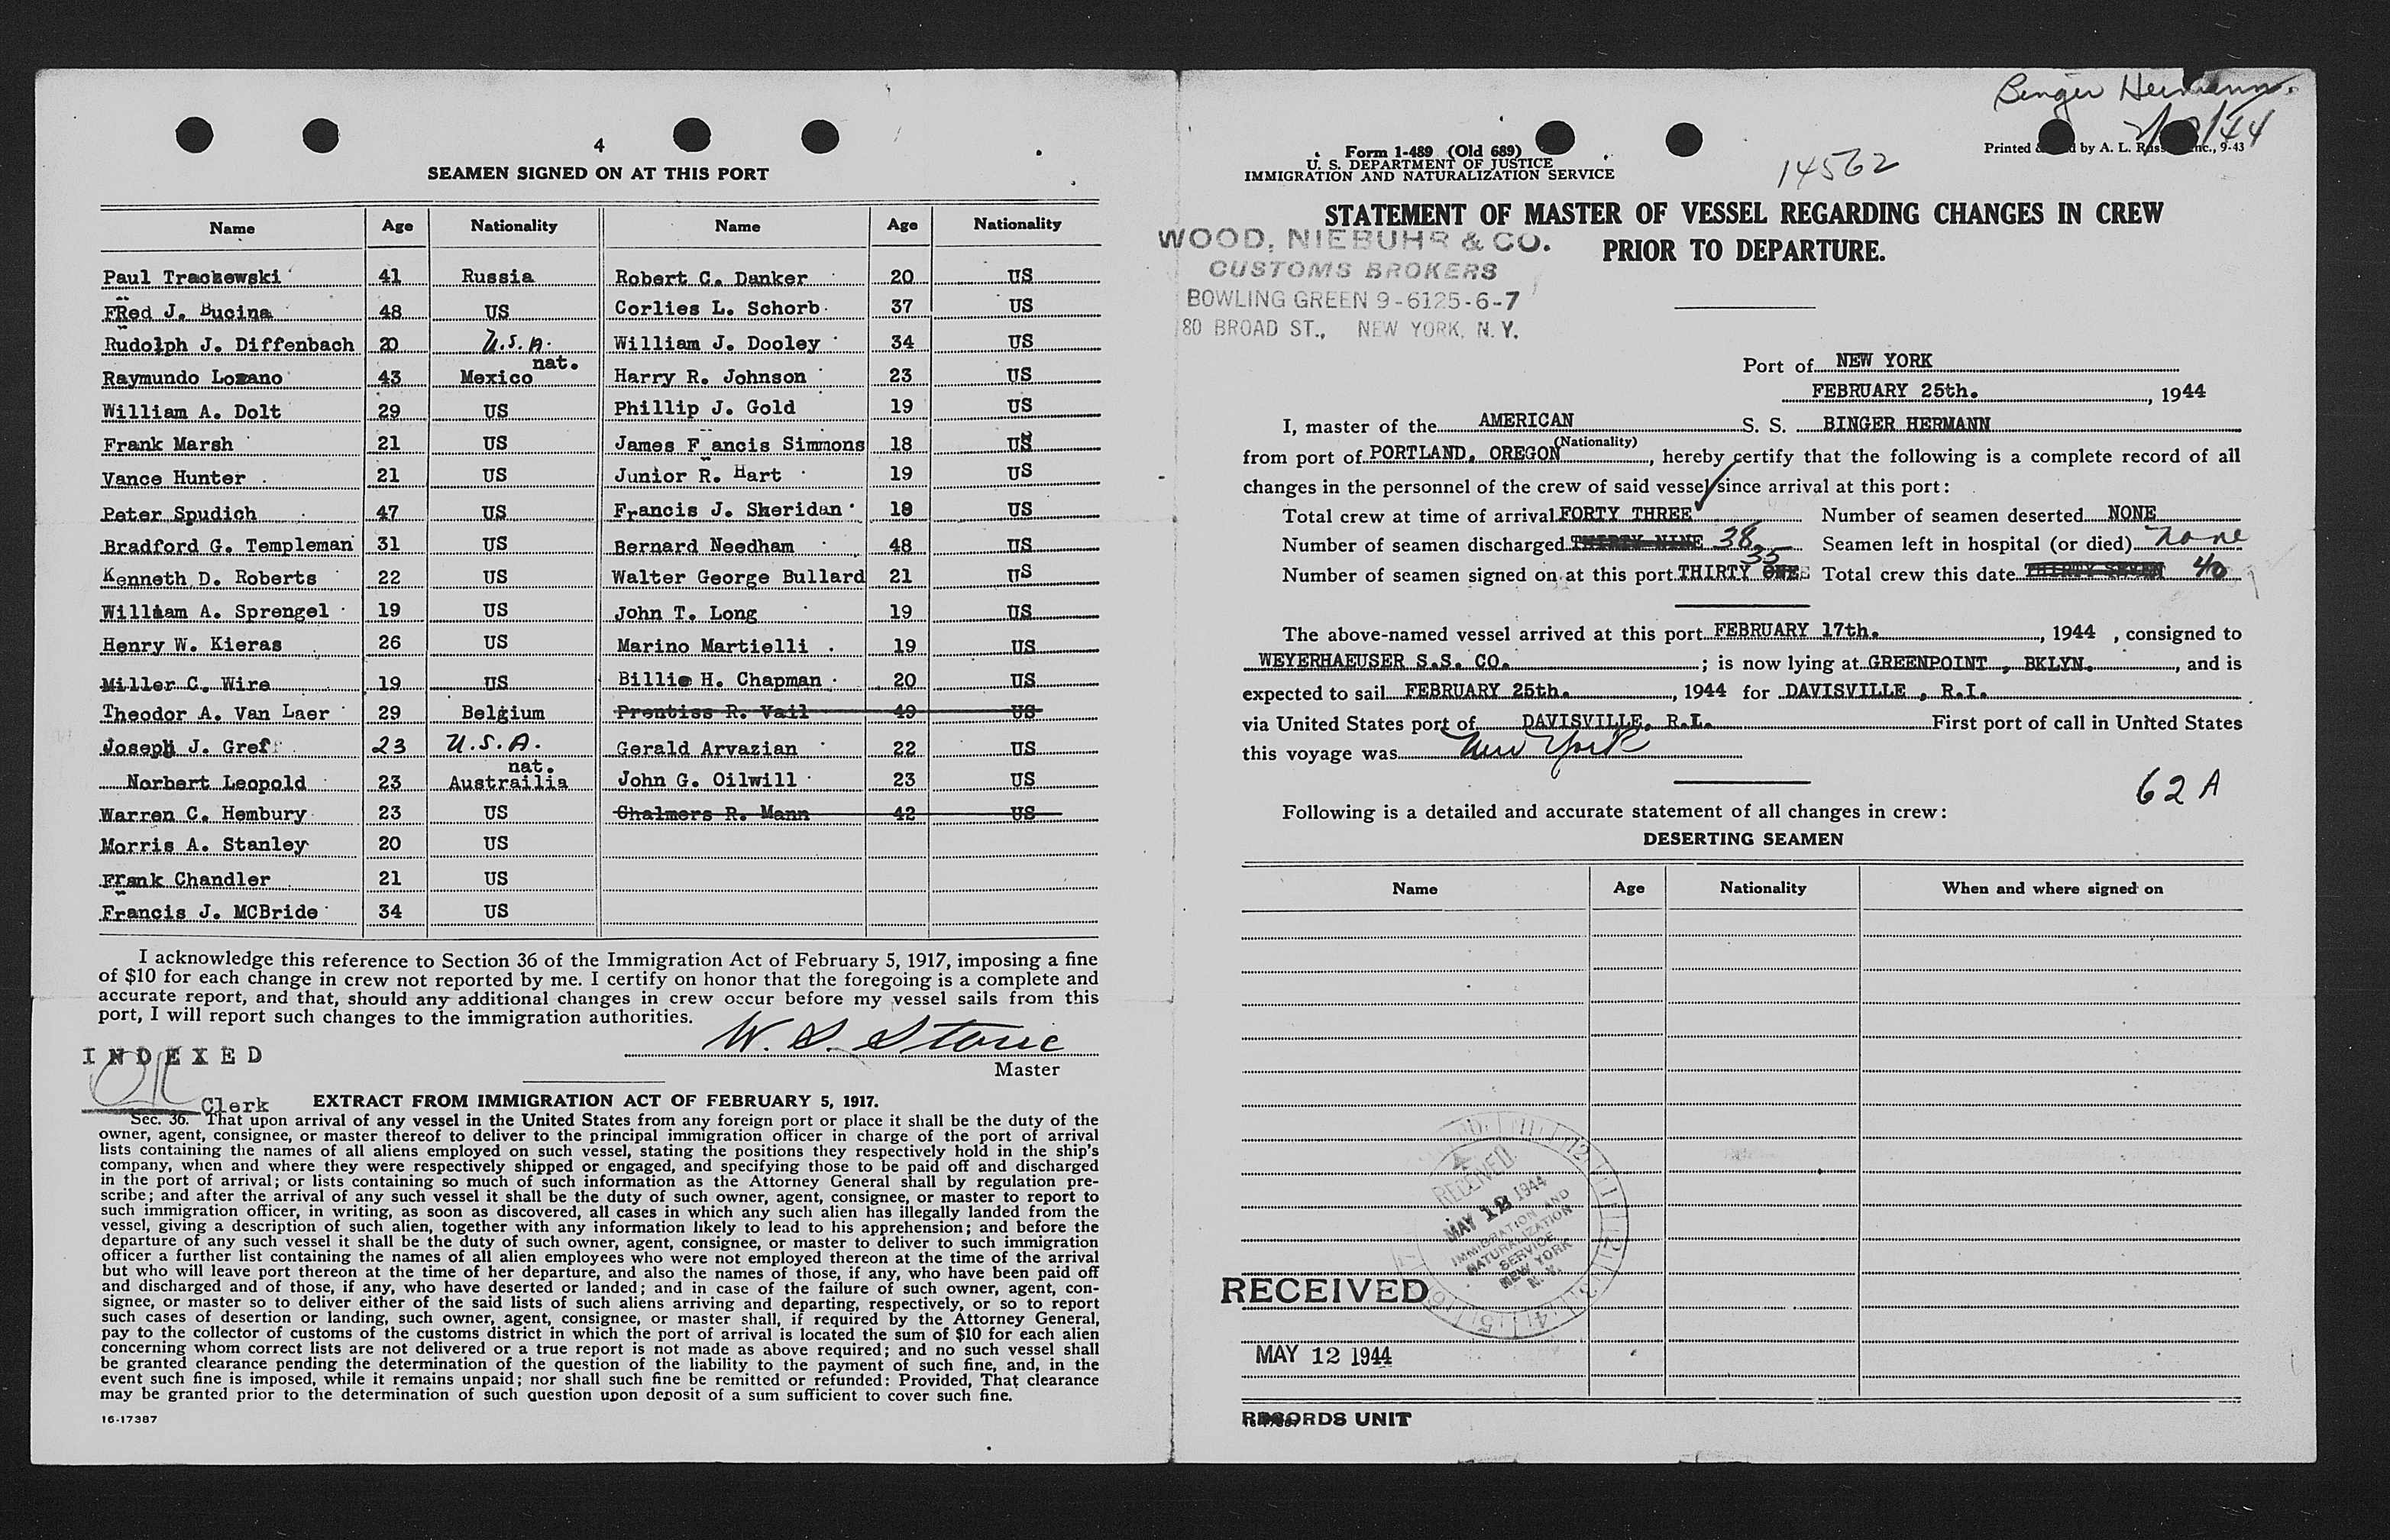 4
SEAMEN SIGNED ON AT THIS PORT
Name Age Nationality Name Age Nationality
Paul Traczewski 41 Russia Robert C. Danker 20 US
FRed J. Bucina 48 US Corlies L. Schorb 37 US
Rudolph J. Diffenbach 20 U.S.A. William J. Dooley 34 US
Raymundo Lozano 43 Mexico nat. Harry R. Johnson 23 US
William A. Dolt 29 US Phillip J. Gold 19 US
Frank Marsh 21 US James F ancis Simmons 18 US
Vance Hunter 21 US Junior R. Hart 19 US
Peter Spudich 47 US Francis J. Sheridan 18 US
Bradford G. Templeman 31 US Bernard Needham 48 US
Kenneth D. Roberts 22 US Walter George Bullard 21 US
William A. Sprengel 19 US John T. Long 19 US
Henry W. Kieras 26 US Marino Martielli 19 US
Miller C. Wire 19 US Billie H. Chapman 20 US
Theodor A. Van Laer 29 Belgium Prentiss R. Vail 49 US
Joseph J. Gref 23 U.S.A. Gerald Arvazian 22 US
Norbert Leopold 23 Austrailia nat. John G. Oilwill 23 US
Warren C. Hembury 23 US Chalmers R. Mann 42 US
Morris A. Stanley 20 US
Frank Chandler 21 US
Francis J. MCBride 34 US
I acknowledge this reference to Section 36 of the Immigration Act of February 5, 1917, imposing a fine
of $10 for each change in crew not reported by me. I certify on honor that the foregoing is a complete and
accurate report, and that, should any additional changes in crew occur before my vessel sails from this
port, I will report such changes to the immigration authorities.
W. S. Stone
Master
INDEXED
Clerk
EXTRACT FROM IMMIGRATION ACT OF FEBRUARY 5, 1917.
Sec. 36. That upon arrival of any vessel in the United States from any foreign port or place it shall be the duty of the
owner, agent, consignee, or master thereof to deliver to the principal immigration officer in charge of the port of arrival
lists containing the names of all aliens employed on such vessel, stating the positions they respectively hold in the ship's
company, when and where they were respectively shipped or engaged, and specifying those to be paid off and discharged
in the port of arrival; or lists containing so much of such information as the Attorney General shall by regulation pre-
scribe; and after the arrival of any such vessel it shall be the duty of such owner, agent, consignee, or master to report to
such immigration officer, in writing, as soon as discovered, all cases in which any such alien has illegally landed from the
vessel, giving a description of such alien, together with any information likely to lead to his apprehension; and before the
departure of any such vessel it shall be the duty of such owner, agent, consignee, or master to deliver to such immigration
officer a further list containing the names of all alien employees who were not employed thereon at the time of the arrival
but who will leave port thereon at the time of her departure, and also the names of those, if any, who have been paid off
and discharged and of those, if any, who have deserted or landed; and in case of the failure of such owner, agent, con-
signee, or master so to deliver either of the said lists of such aliens arriving and departing, respectively, or so to report
such cases of desertion or landing, such owner, agent, consignee, or master shall, if required by the Attorney General,
pay to the collector of customs of the customs district in which the port of arrival is located the sum of $10 for each alien
concerning whom correct lists are not delivered or a true report is not made as above required; and no such vessel shall
be granted clearance pending the determination of the question of the liability to the payment of such fine, and, in the
event such fine is imposed, while it remains unpaid; nor shall such fine be remitted or refunded: Provided, That clearance
may be granted prior to the determination of such question upon deposit of a sum sufficient to cover such fine.
16-17387
Binger Hermann
Form 1-489 (Old 689)
U. S. DEPARTMENT OF JUSTICE
IMMIGRATION AND NATURALIZATION SERVICE
14562
Printed by A. L. Inc., 9-43
STATEMENT OF MASTER OF VESSEL REGARDING CHANGES IN CREW
PRIOR TO DEPARTURE.
WOOD, NIEBUHR & CO.
CUSTOMS BROKERS
BOWLING GREEN 9-6125-6-7
80 BROAD ST., NEW YORK, N. Y.
Port of NEW YORK
FEBRUARY 25th. , 1944
I, master of the AMERICAN S. S. BINGER HERMANN
(Nationality)
from port of PORTLAND, OREGON , hereby certify that the following is a complete record of all
changes in the personnel of the crew of said vessel since arrival at this port:
Total crew at time of arrival FORTY THREE Number of seamen deserted NONE
Number of seamen discharged THIRTY NINE 38 Seamen left in hospital (or died) none
Number of seamen signed on at this port THIRTY 35 Total crew this date THIRTY SEVEN 40
The above-named vessel arrived at this port FEBRUARY 17th. , 1944 , consigned to
WEYERHAEUSER S.S. CO. ; is now lying at GREENPOINT , BKLYN. , and is
expected to sail FEBRUARY 25th. , 1944 for DAVISVILLE , R.I.
via United States port of DAVISVILLE, R.I. First port of call in United States
this voyage was New York
62 A
Following is a detailed and accurate statement of all changes in crew:
DESERTING SEAMEN
Name Age Nationality When and where signed on
RECEIVED
MAY 18 1944
IMMIGRATION AND
NATURALIZATION
SERVICE
NEW YORK
N. Y.
RECEIVED
MAY 12 1944
RECORDS UNIT